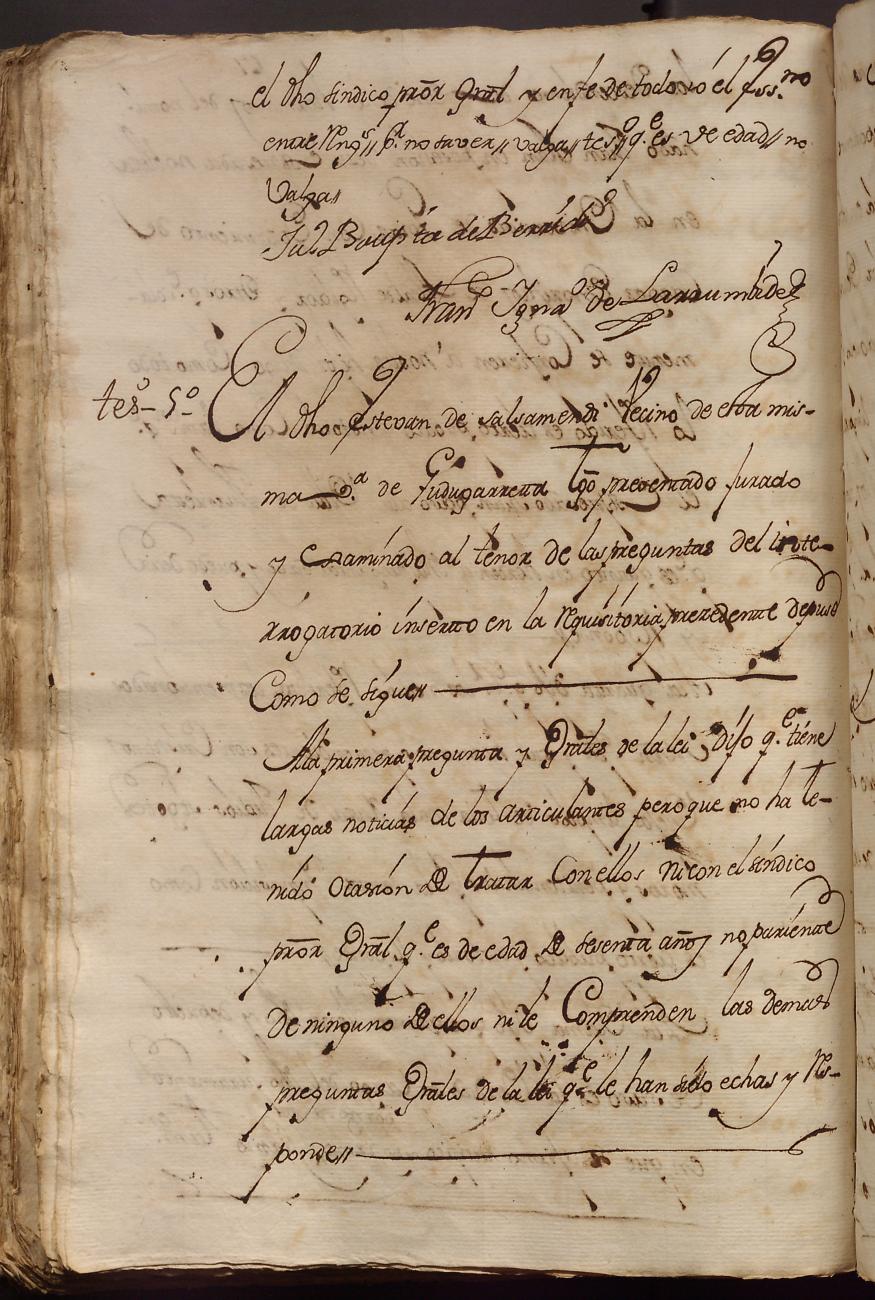 el dho sindico prõr Gral y en fe de todo ió el Ess.no
entre Rengs // pa. no saver // valga // teso // q.e es de edad // no
Valga //
Ju.º Baupta de
Franco Igna.º de Larrumide
teso – 5.º El dho Estevan de salsamendi Vecino de esta mis-
ma v.a de Gudugarreta tgõ presentado Jurado
y examinado al tenor de las preguntas del inte-
rrogatorio inserto en la requisitoria prezedente depuso
Como se sigue //
Ala primera pregunta y Grãles de la lei ; Dijo q.e tiene
largas noticias de los articulantes pero que no ha te-
nido ocasion de tratar Con ellos ni con el sindico
prõr Grãl q.e es de edad de sesenta años no pariente
De ninguno de ellos ni le Comprenden las demas
preguntas Grãles de la lei q.e le han sido echas y Res-
ponde //